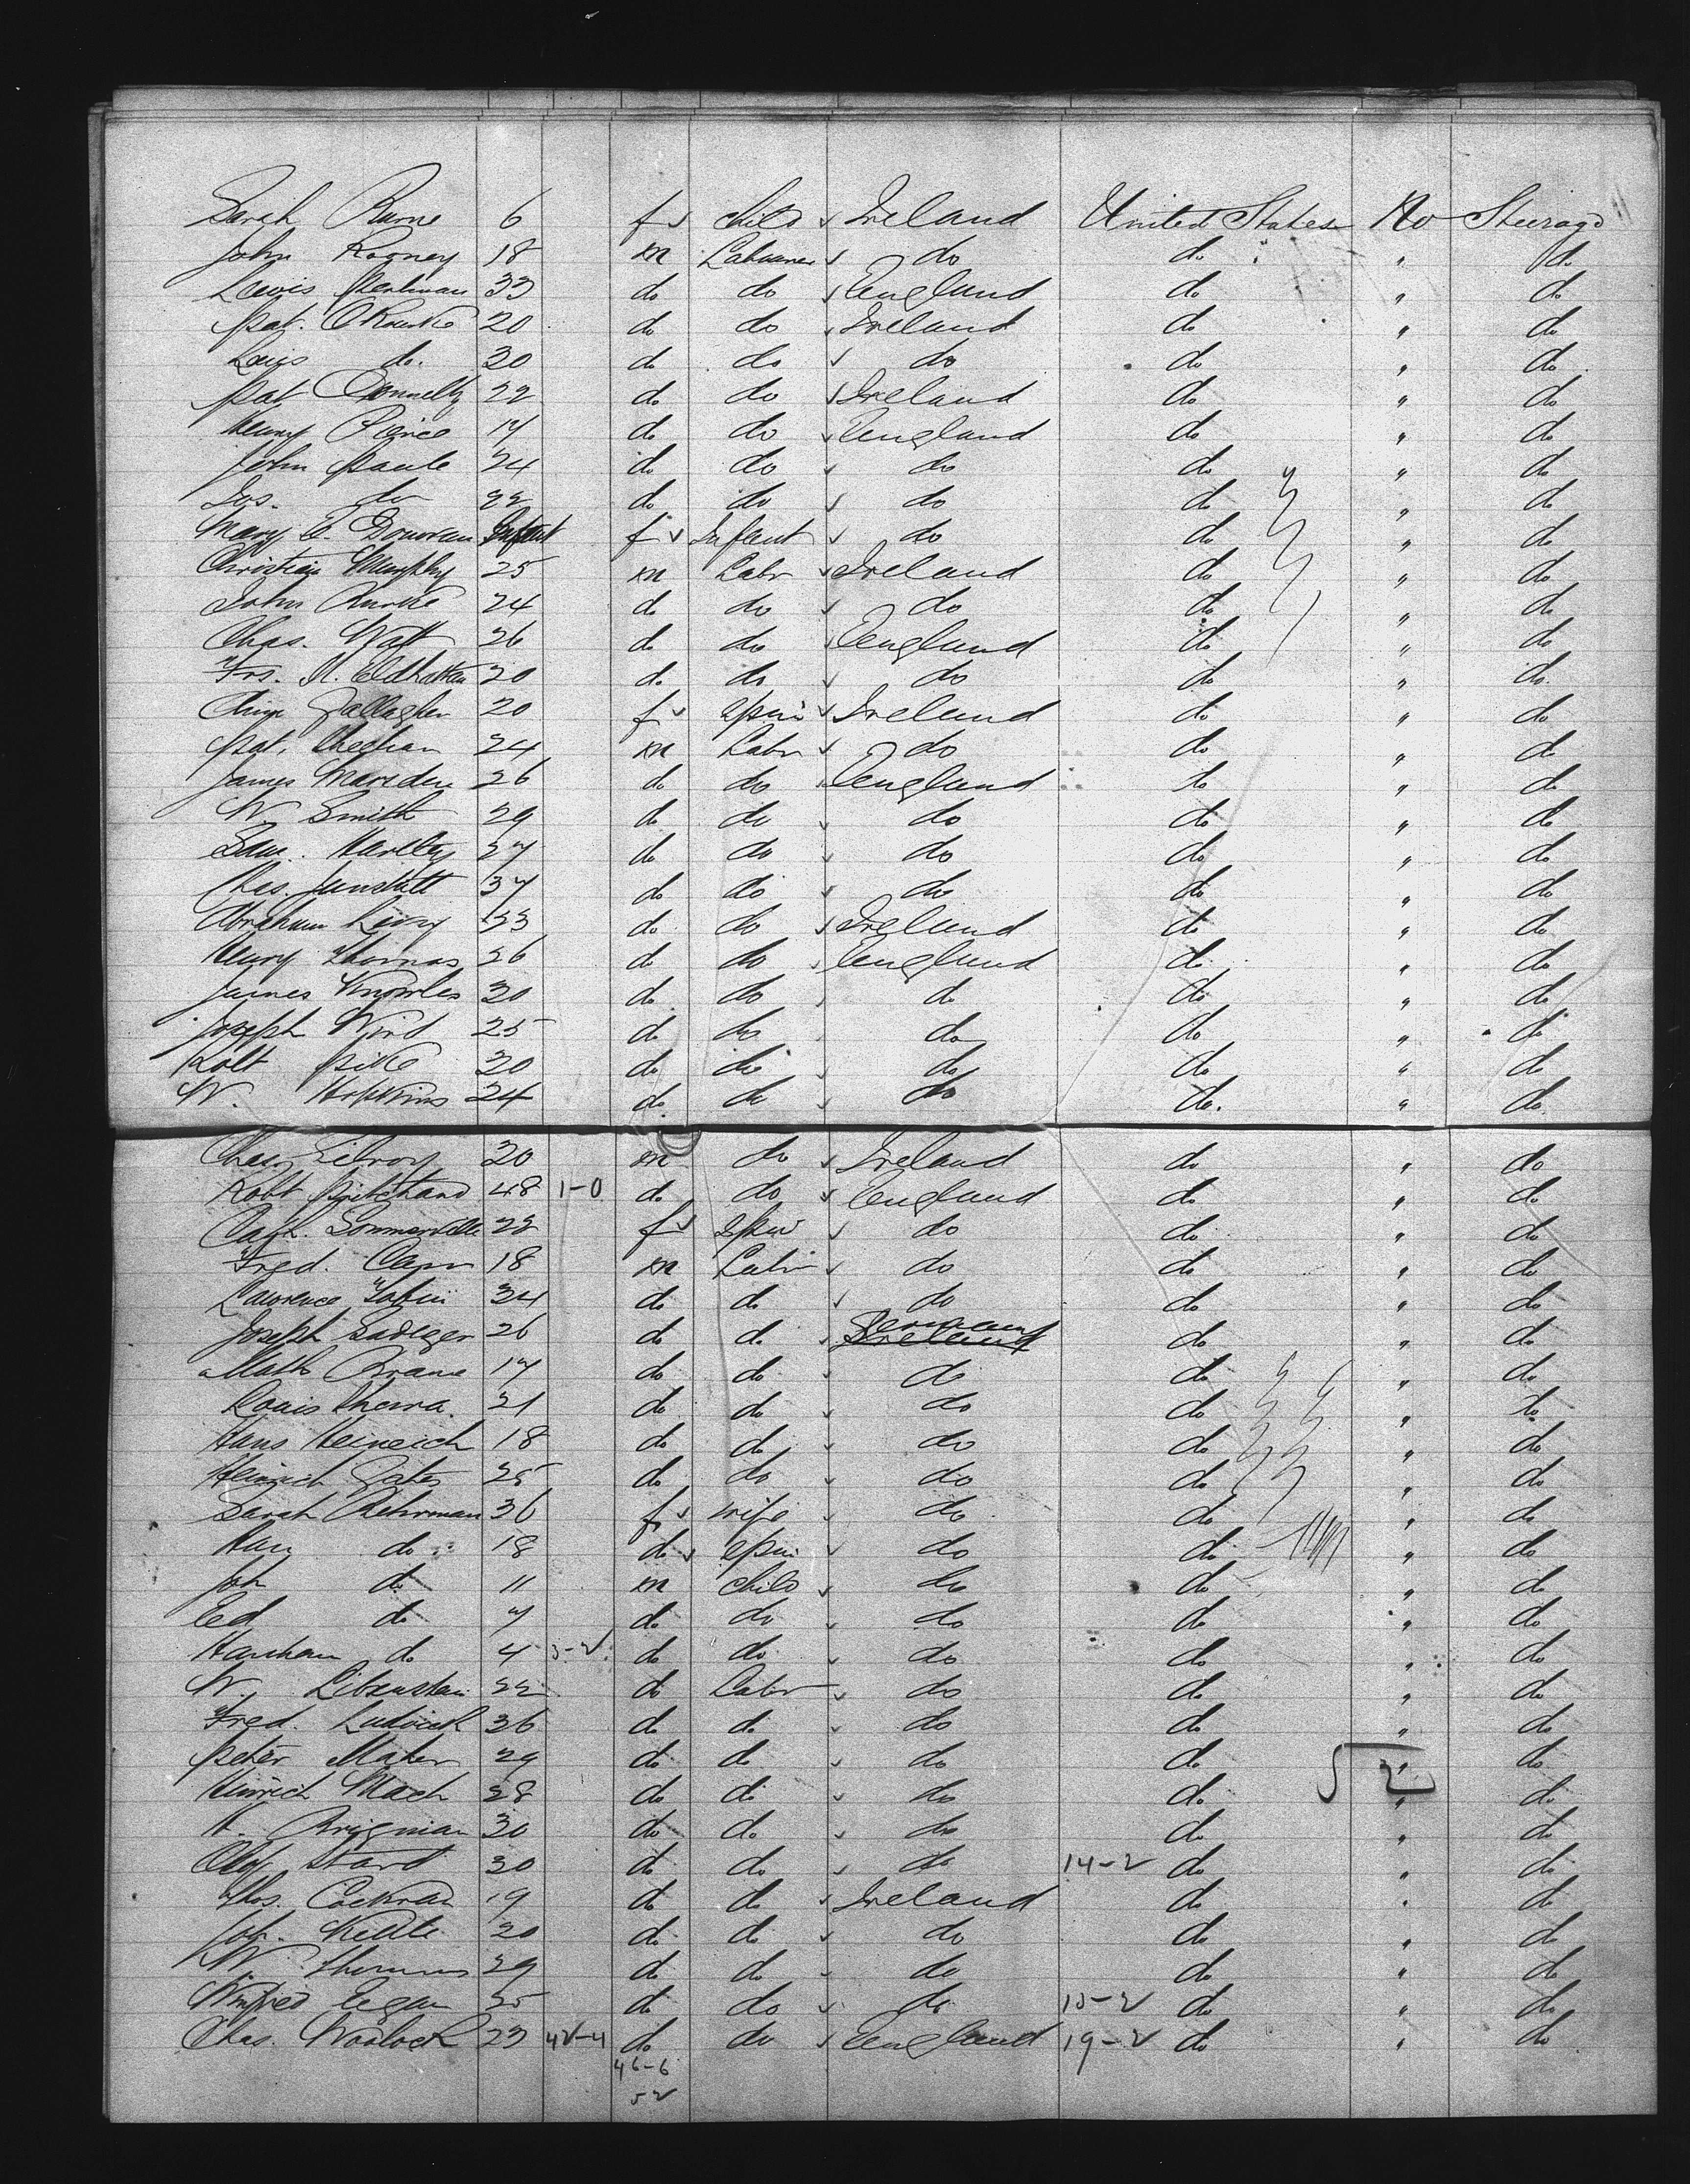 Sarah Burne 6 f child Ireland United States No Steerage
John Rooney 18 m Labourer do do " do
Lewis Perlman 33 do do England do " do
Pat. O'Rourke 20 do do Ireland do " do
Luis do. 30 do do do do " do
Pat Connelly 22 do do Ireland do " do
Henry Pierce 17 do do England do " do
John Paule 24 do do do do " do
Jos. do 22 do do do do " do
Mary E. Donovan Infant f Infant do do " do
Christian Murphy 25 m Labr Ireland do " do
John Burke 24 do do do do " do
Chas. Watt 26 do do England do " do
Frs. 20 do do do do " do
Gallagher 20 f Spin Ireland do " do
Pat. Sheehan 24 m Labr do do " do
James Marsden 26 do do England do " do
W. Smith 29 do do do do " do
Sam. Hartley 27 do do do do " do
Chas. 37 do do do do " do
Abraham Levy 33 do do Ireland do " do
Henry Thomas 26 do do England do " do
James Knowles 30 do do do do " do
Joseph Wird 25 do do do do " do
Robt Pike 20 do do do do " do
W. Hopkins 24 do do do do. " do.
Chas Gilroy 20 m do Ireland do " do
Robt Pritchard 48 1-0 do do England do " do
Cath. Sommerville 22 f Spin do do " do
Fred. Capn 18 m Labr do do " do
Lawrence Tobin 34 do do do do " do
Joseph Sadleger 26 do do Germany Ireland do " do
Math Braun 17 do do do do " do
Louis 21 do do do do " do
Hans Heinrich 18 do do do do " do
Heinrich Gates 25 do do do do " do
Sarah Rehrman 36 f wife do do " do
Han do 18 do spin do do " do
Joh do 11 m child do do " do
Ed do 7 do do do do " do
Hanchen do 4 3-2 do do do do " do
W. Libenstein 22 do Labr do do " do
Fred. Ludwich 36 do do do do " do
Peter Maher 29 do do do do " do
Hinrich Mach 28 do do do do " do
H. Brigman 30 do do do do " do
Olof Stard 30 do do do 14-2 do " do
Thos. Cockran 19 do do Ireland do " do
Joh. Kettle 20 do do do do " do
W. Thomas 29 do do do do " do
Winfred Egan 25 do do do 15-2 do " do
Chas. Woolock 23 42-4 do do England 19-2 do " do
46-6
52